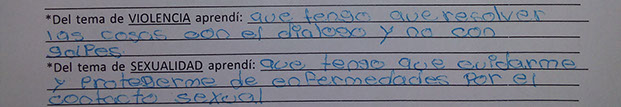 *Del tema de VIOLENCIA aprendí: que tengo que resolver
las cosas con el dialogo y no con
golpes
*Del tema de SEXUALIDAD aprendí: que tengo que cuidarme
y protegerme de enfermedades por el
contacto sexual